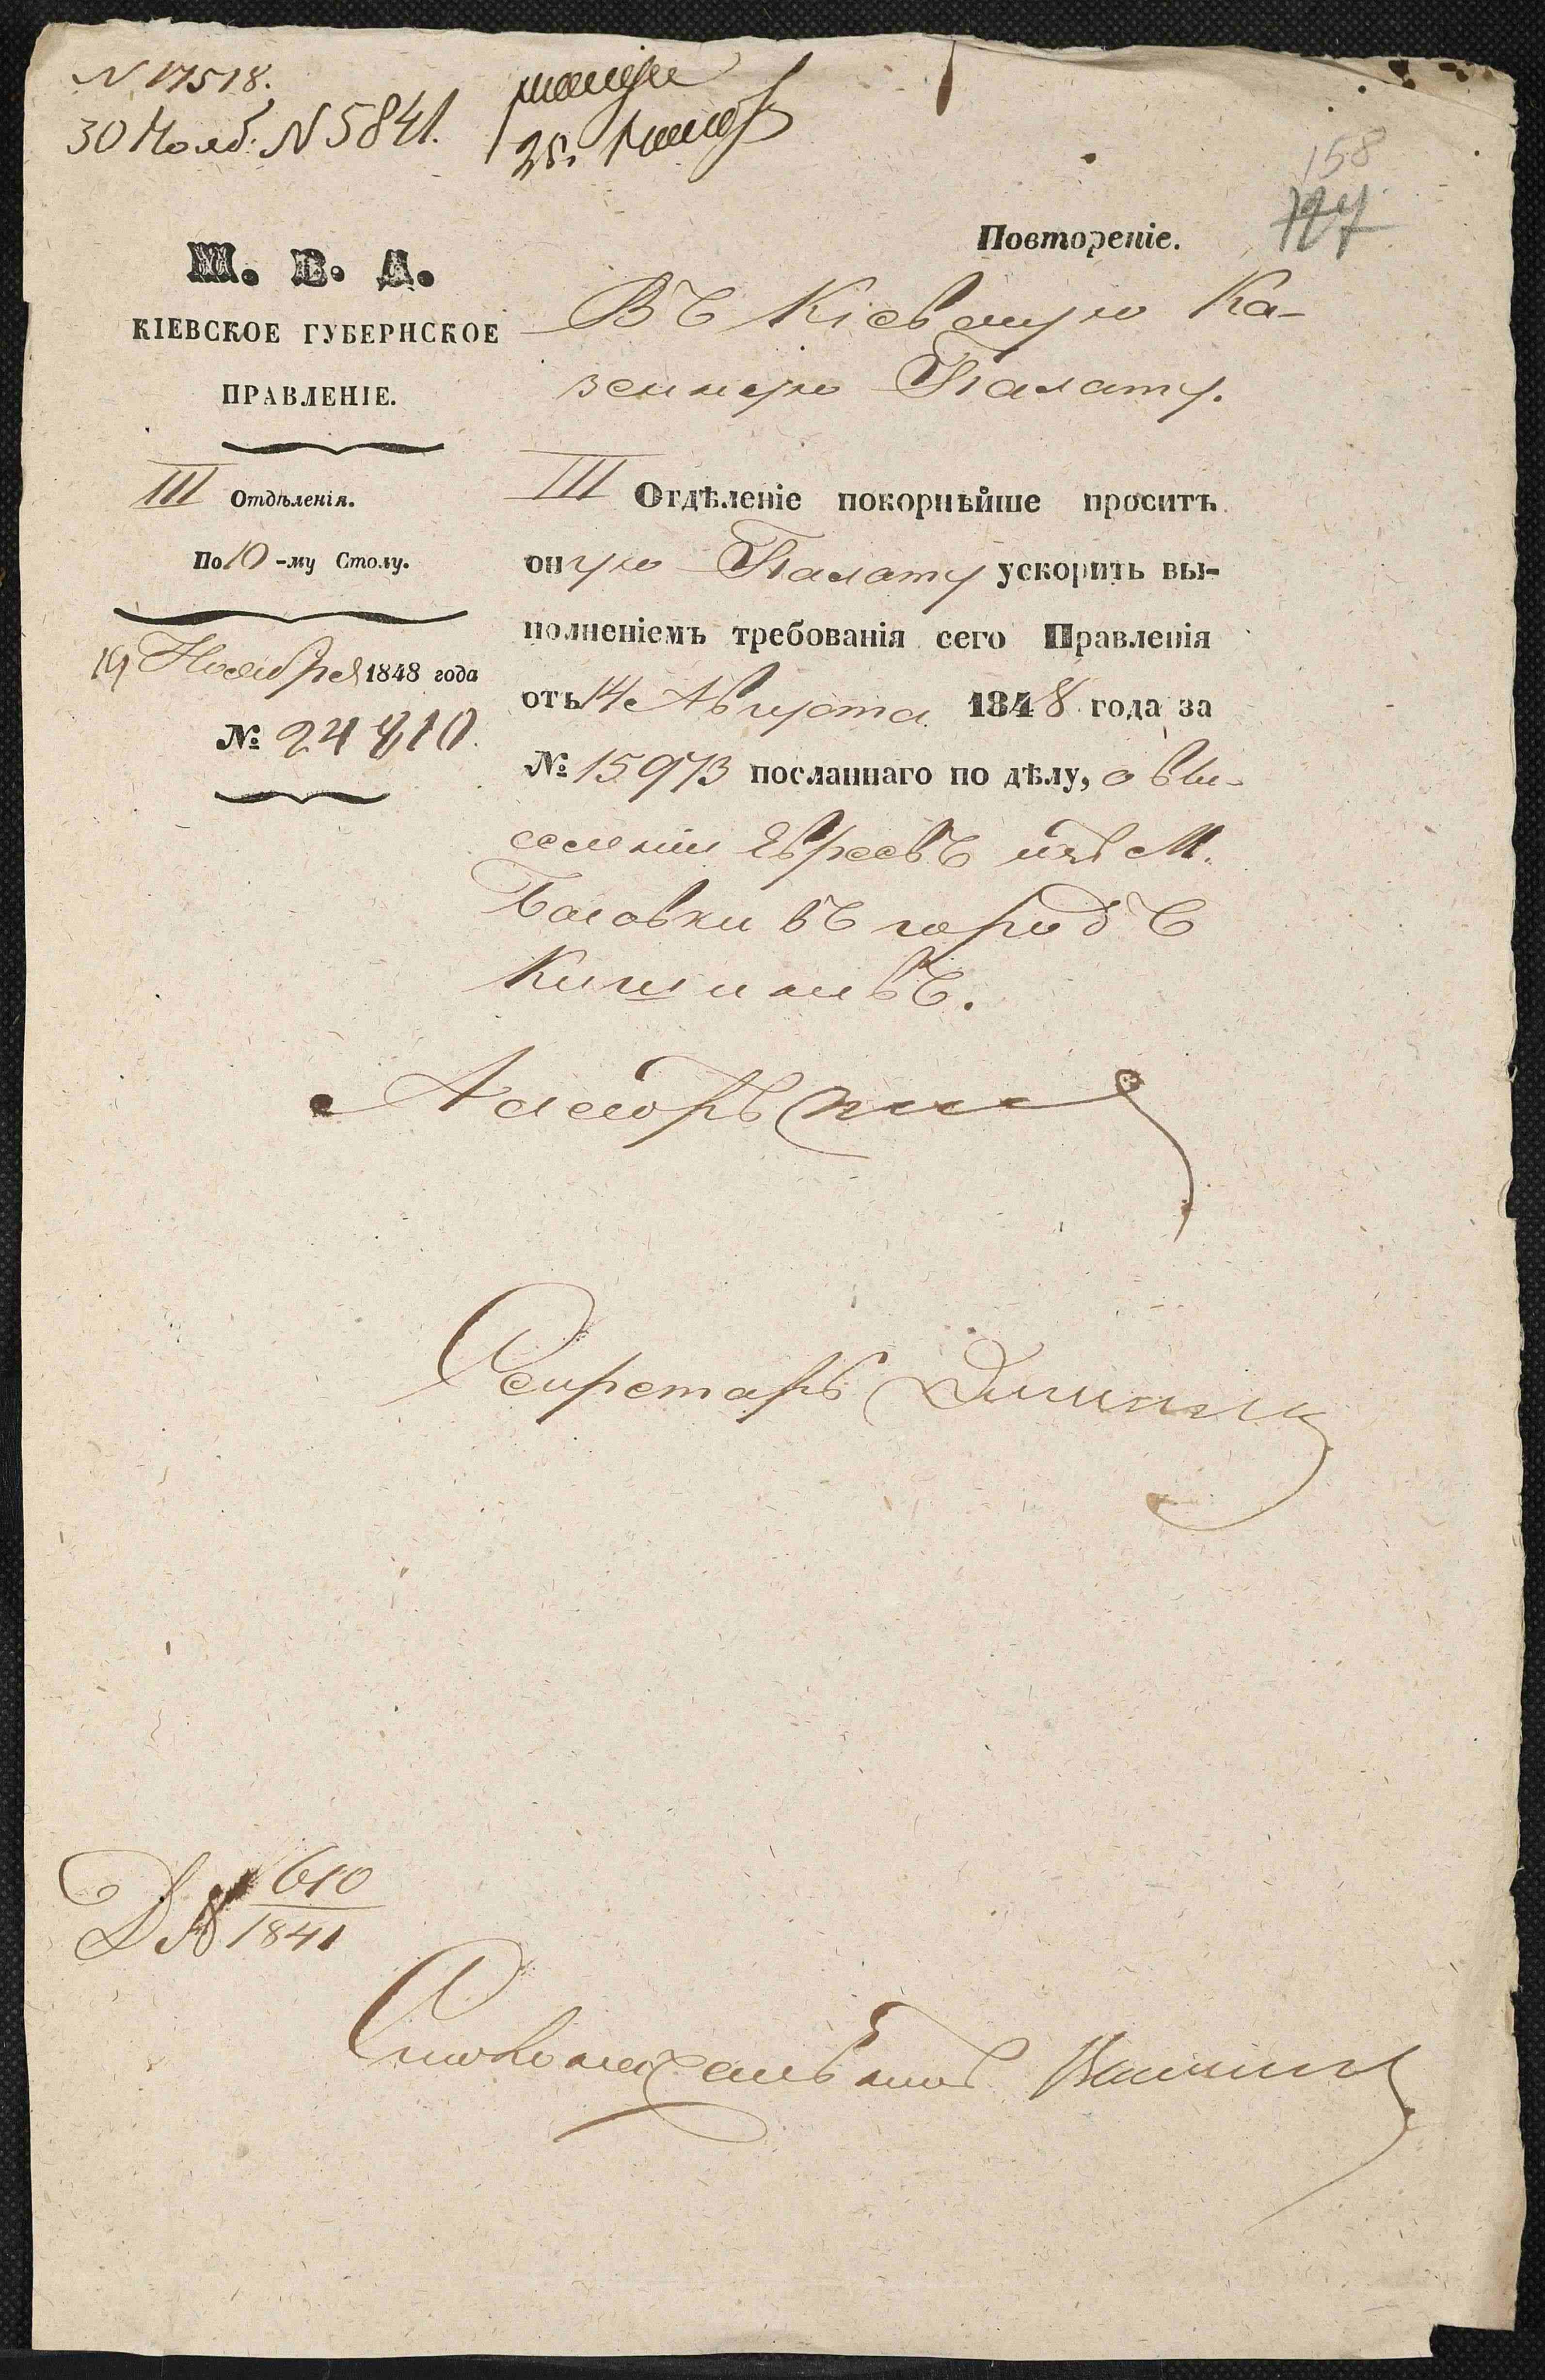 N 17518.
30 Нояб: N 5841.
25.
158
127
Повтореніе.
М. В. Д.
КІЕВСКОЕ ГУБЕРНСКОЕ
ПРАВЛЕНІЕ.
III Отдѣленія.
По 10-му Столу.
19 Ноября 1848 года
№ 24810.
Въ Кіевскую Ка-
зенную Палату.
III Отдѣленіе покорнѣйше проситъ
оную Палату ускорить вы-
полненіемъ требованія сего Правленія
отъ 14 Августа 1848 года за
№ 15973 посланнаго по дѣлу, о вы-
селеніи Евреевъ изъ М.
въ городъ
Кишиневъ.
Ассесоръ
Секретарь
Д № 610
1841
Столоначальникъ